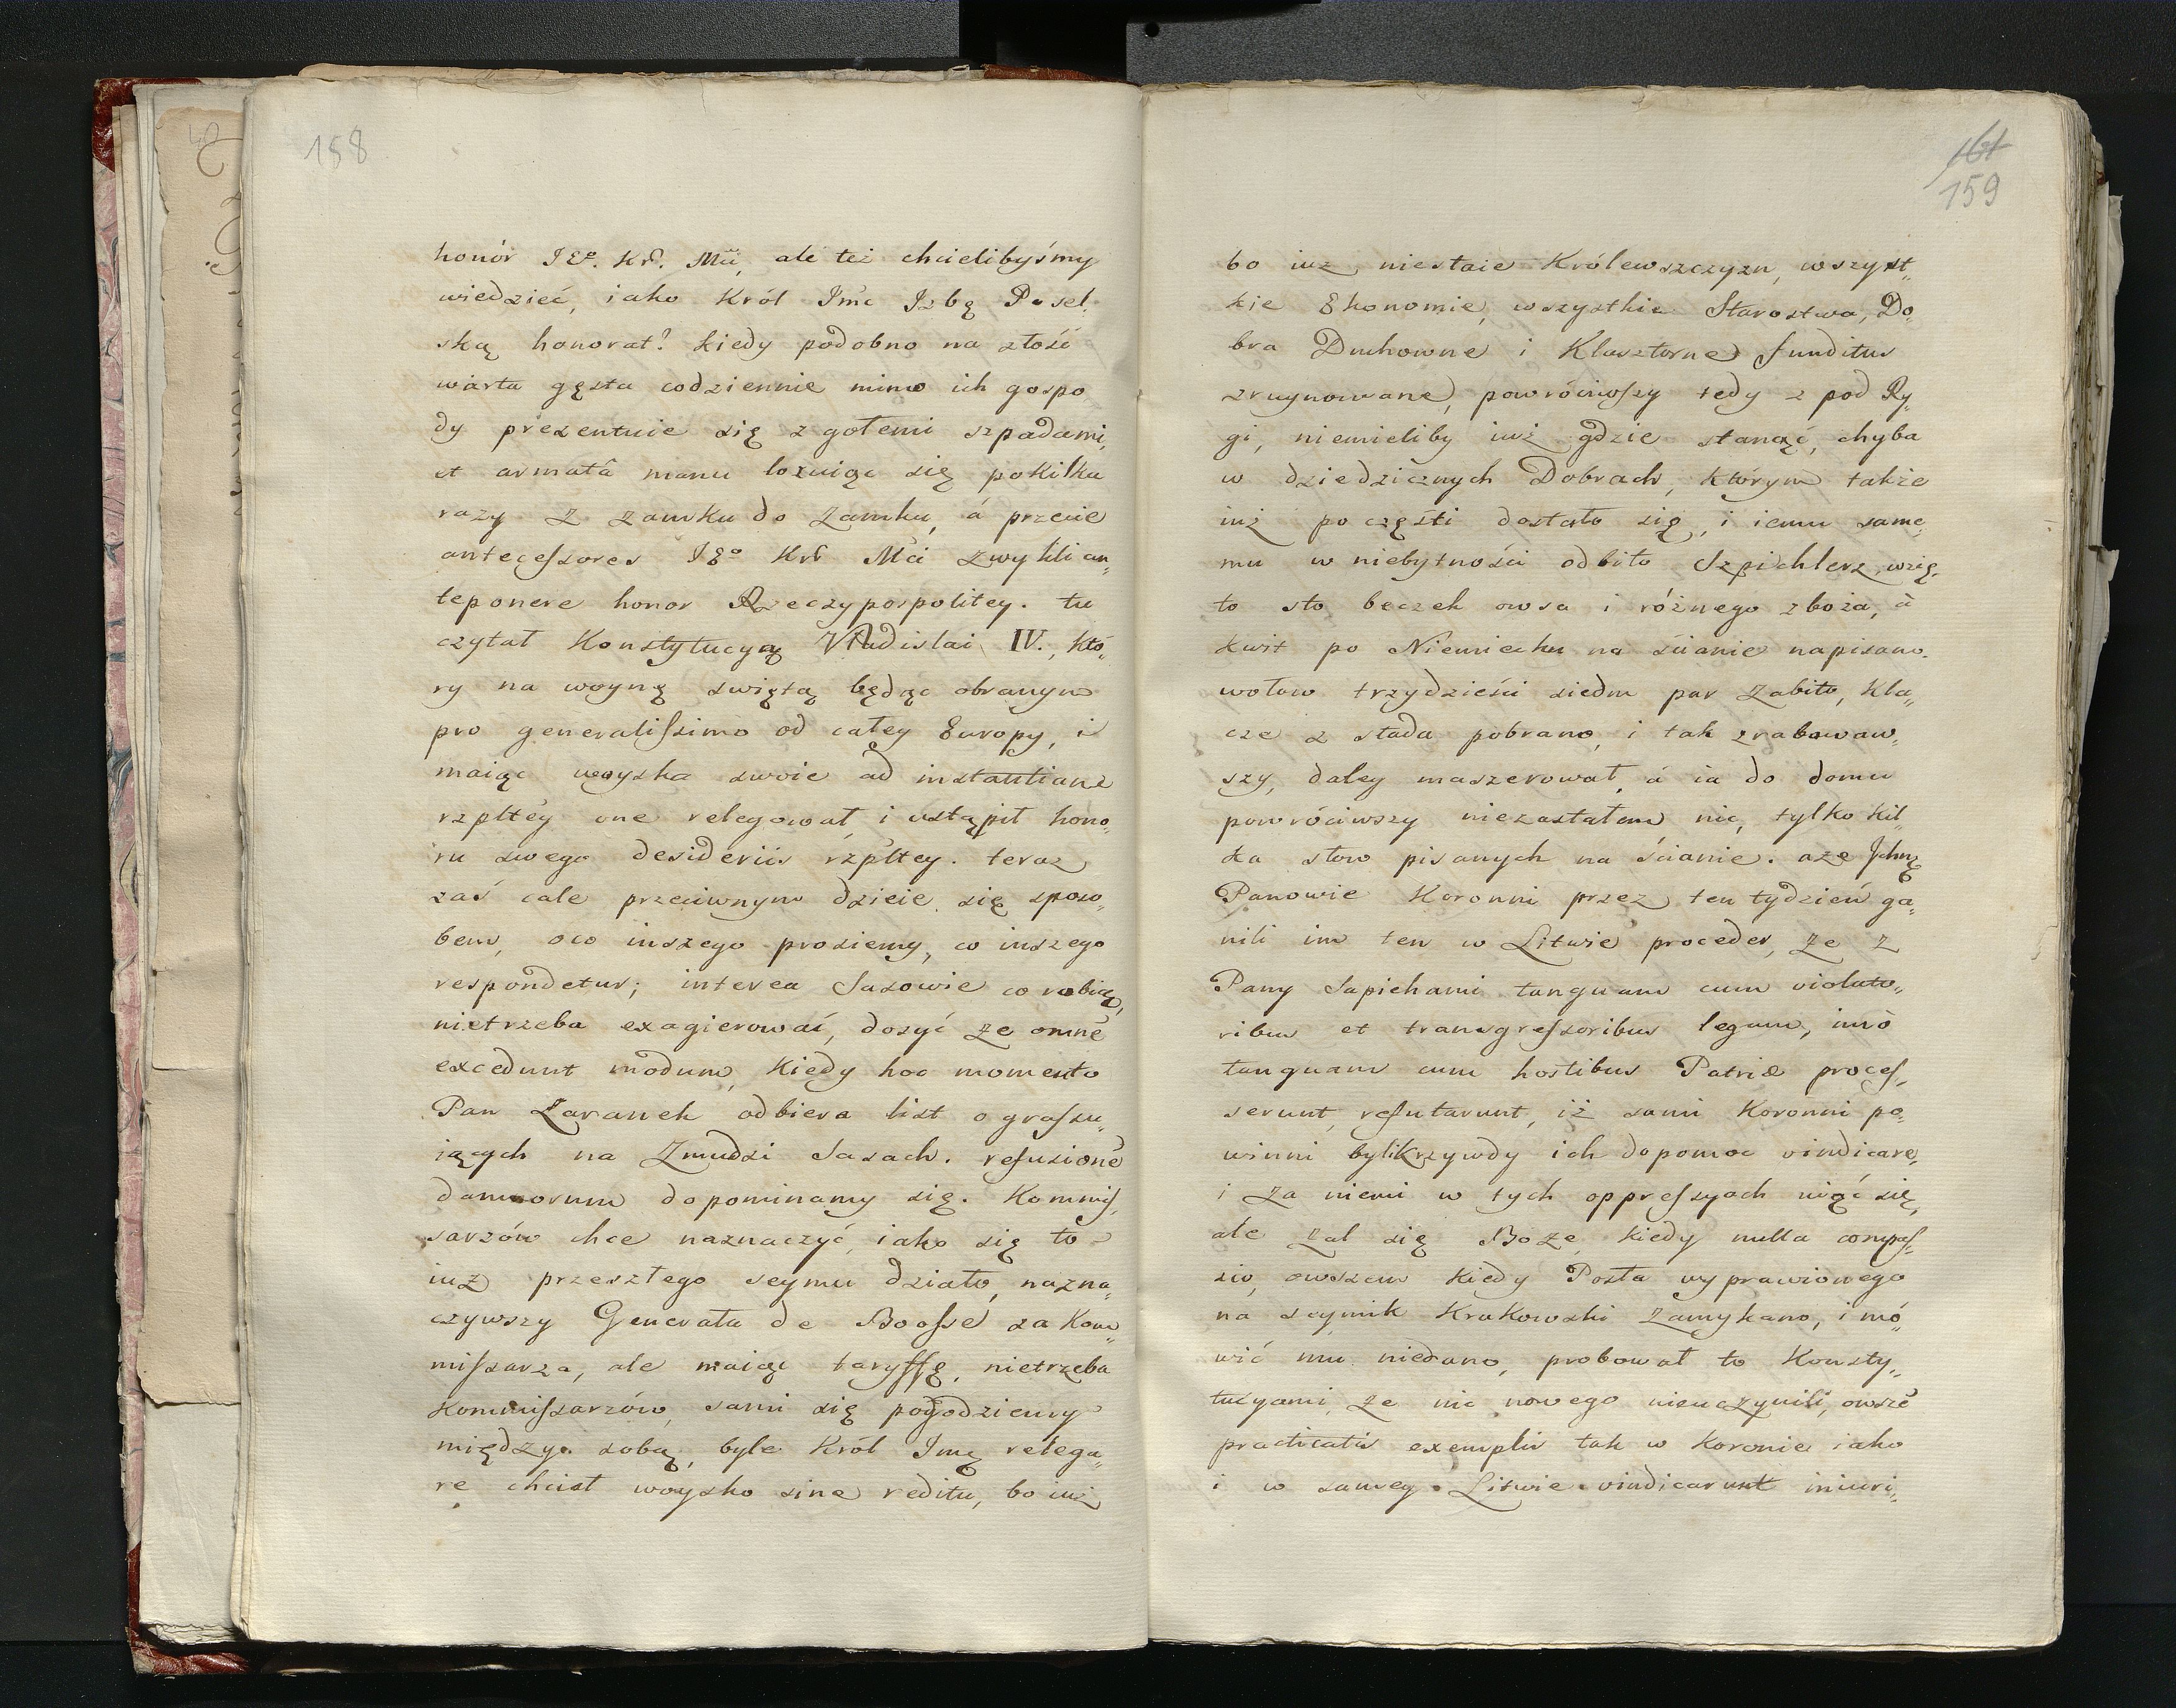 158
honór JEº. Kr. Mći, ale też chcielibyśmy
wiedzieć, iako Król Jmć Jzbę Posel„
ską honorat? kiedy podobno na złość
warta gęsta codziennie mimo ich gospo„
dy prezentuie się z gołemi szpadami,
et armatâ manu lozuiąc się pokilka
razy z zamku do zamku, á przecie
antecessores JEº Kr Mći zwykli an„
teponere honor Rzeczypospolitey. tu
czytał Konstytucyą Vladislai IV., któ„
ry na woynę swiętą będąc obranym
pro generalissimo od całey Europy, i
maiąc woyska swoie ad instantiam
rzpltey one relegował, i ustąpił hono„
ru swego desideriis rzpltey. teraz
zaś cale przeciwnym dzieie się sposo„
bem, oco inszego prosiemy, co inszego
respondetur; interea Sasowie co robią,
nietrzeba exagierować, dosyć że omnē
excedunt modum, kiedy hoc momento
Pan Zaranek odbiera list o grassu„
iących na Zmudzi Sasach. refusionē
damnorum dopominamy się. Kommis„
sarzów chce naznaczyć, iako się to
iuż przeszłego seymu działo, nazna„
czywszy Generała de Boosse za Kom„
missarza, ale maiąc taryffę, nietrzeba
Kommissarzów, sami się pogodziemy
między sobą, byle Król Jmć relega„
re chciał woysko sine reditu, bo iuż
161
159
bo iuż niestaie Królewszczyzn, wszyst„
kie Ekonomie, wszystkie Starostwa, Do„
bra Duchowne i Klasztorne funditus
zruynowane, powróciwszy tedy z pod Ry„
gi, niemieliby iuż gdzie stanąć, chyba
w dziedzicznych Dobrach, którym także
iuż po części dostało się, i iemu same„
mu w niebytności odbito Szpichlerz, wzię„
to sto beczek owsa i różnego zboża, à
kwit po Niemiecku na ścianie napisano.
wołow trzydzieści siedm par zabito, kla„
cze z stada pobrano, i tak zrabowaw„
szy, daley maszerował, á ia do domu
powróciwszy niezastałem nic, tylko kil„
ka słow pisanych na ścianie. aże Jchmć
Panowie Koronni przez ten tydzień ga„
nili im ten w Litwie proceder, że z
Pany Sapiehami tanquam cum violato„
ribus et transgressoribus legum, imò
tanquam cum hostibus Patriæ proces„
serunt, refutarunt, iż sami Koronni po„
winni byli krzywdy ich dopomoc vindicare,
i za niemi w tych oppressyach uiąć się,
ale żal się Boże, kiedy nulla compas„
sio, owszem kiedy Posła wyprawionego
na seymik Krakowski zamykano, i mó„
wić mu niedano, probował to Konsty„
tucyami, że nic nowego nieuczynili, owszē
practicatis exemplis tak w Koronie iako
i w samey Litwie vindicarunt iniuri„